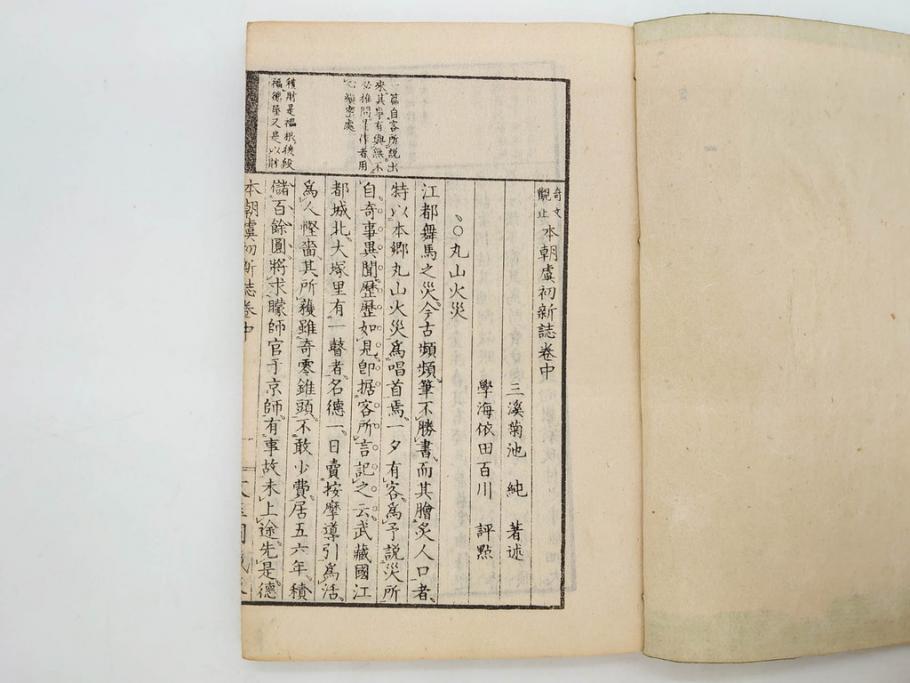 奇文
觀止
本朝虞初新誌卷中
三溪菊池 純 著述
學海依田百川 評點
○丸山火災
江都舞馬之災今古頻頻筆不勝書而其膾炙人口者
特以本鄉丸山火災爲唱首焉一夕有客爲予說災所
自奇事異聞歷歷如見卽据客所言記之云武藏國江
都城北大塚里有一瞽者名德一日賣按摩導引爲活
爲人慳嗇其所獲雖奇零錐頭不敢少費居五六年積
儲百餘圓將求矇師官于京師有事故未上途先是德
一篇自客所說出
來其事有與無不
必推問是作者用
心縝密處
積財是禍根後段
福德屋又是以財
本朝虞初新誌卷中